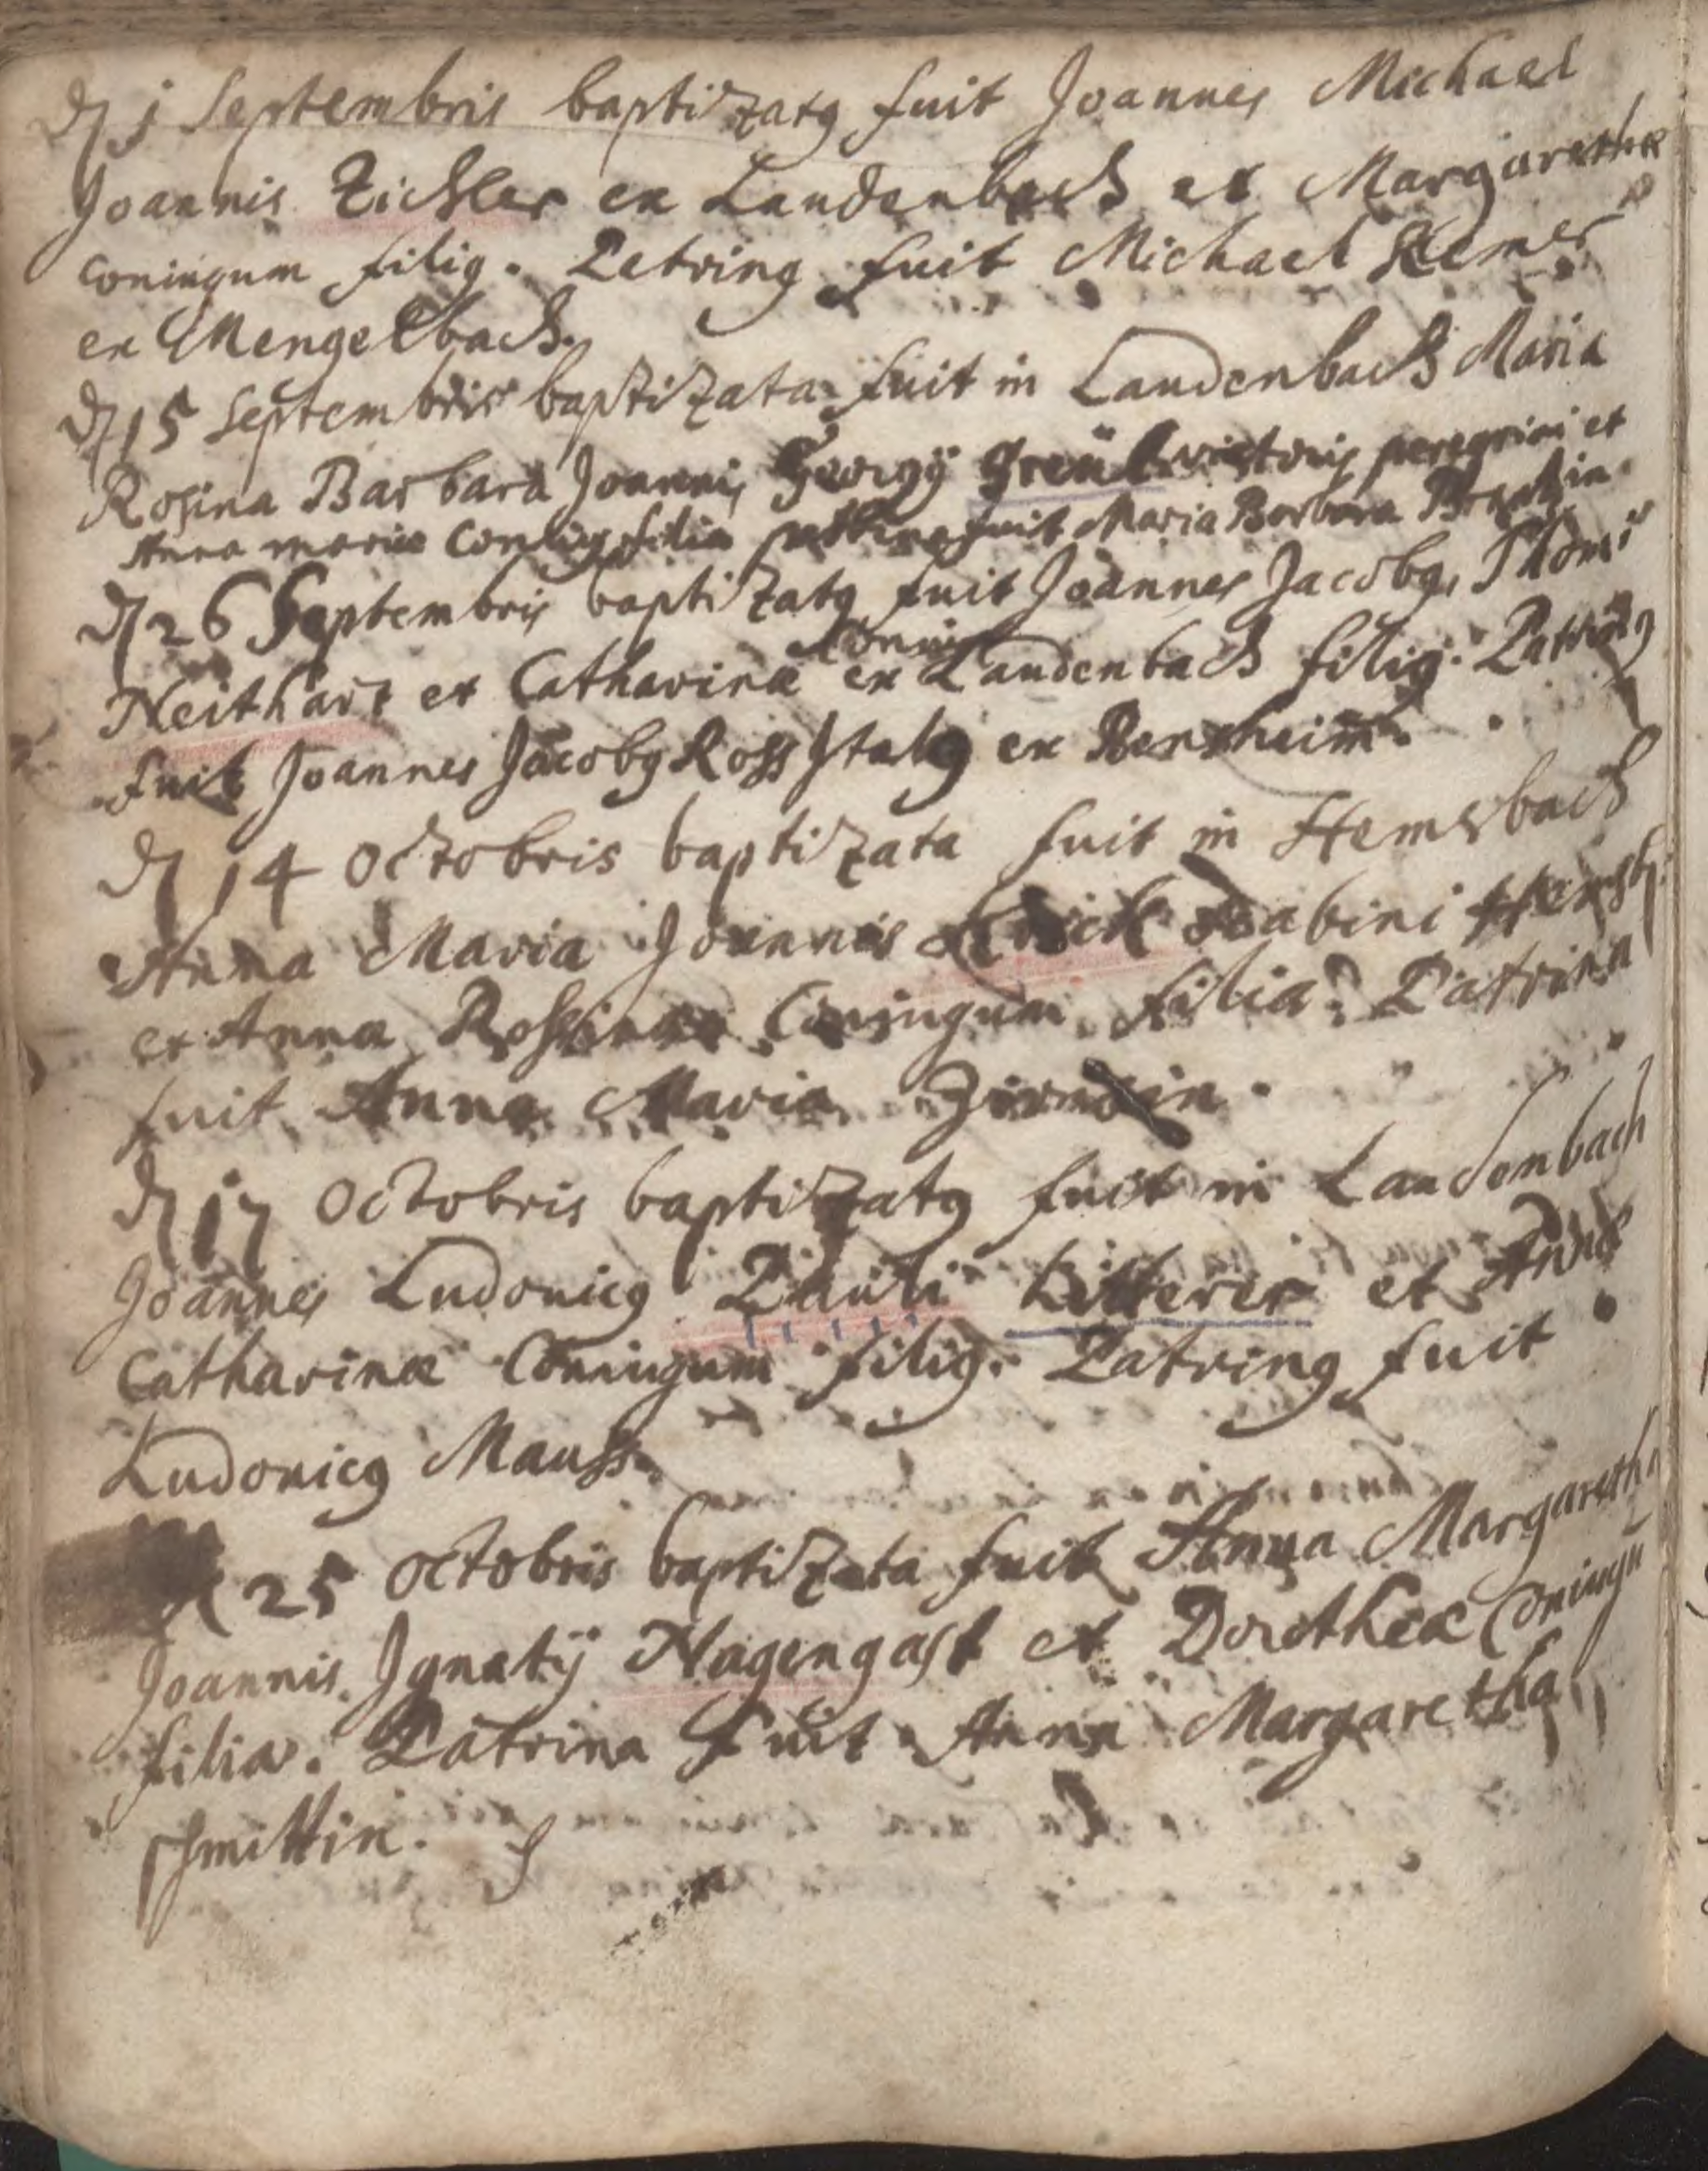 D 1 Septembris baptizatus fuit Joannes Michael
Joannis Zichler ex Laudenbach et Margarethæ
coniugum filius. Petrinus fuit Michael
ex Mengelbach.
D 15 Septembris baptizata fuit in Laudenbach Maria
Rosina Barbara Joannis Georgij peregrini et
Anna maria filia fuit Maria Barbara
D 26 Septembris baptizatus fuit Joannes Jacobus,
Coniug
Neithart et Catharinæ ex Laudenbach filius. Patrinus
fuit Joannes Jacobus Ross ex
D 14 Octobris baptizata fuit in Hemsbach
Anna Maria Joannis
et Anna Coniugum filia. Patrina
fuit Anna Maria
D 17 Octobris baptizatus fuit in Laudembach
Joannes Ludouicus Pauli Litterer et
Catharinæ Coniugum filius. Patrinus fuit
Ludouicus Mauss.
25 octobris baptizata fuit Anna Margaretha
Joannis Ignatij Nagengast et Dorotheæ Coniugũ
filia. Patrina fuit Anna Margaretha
schmittin.